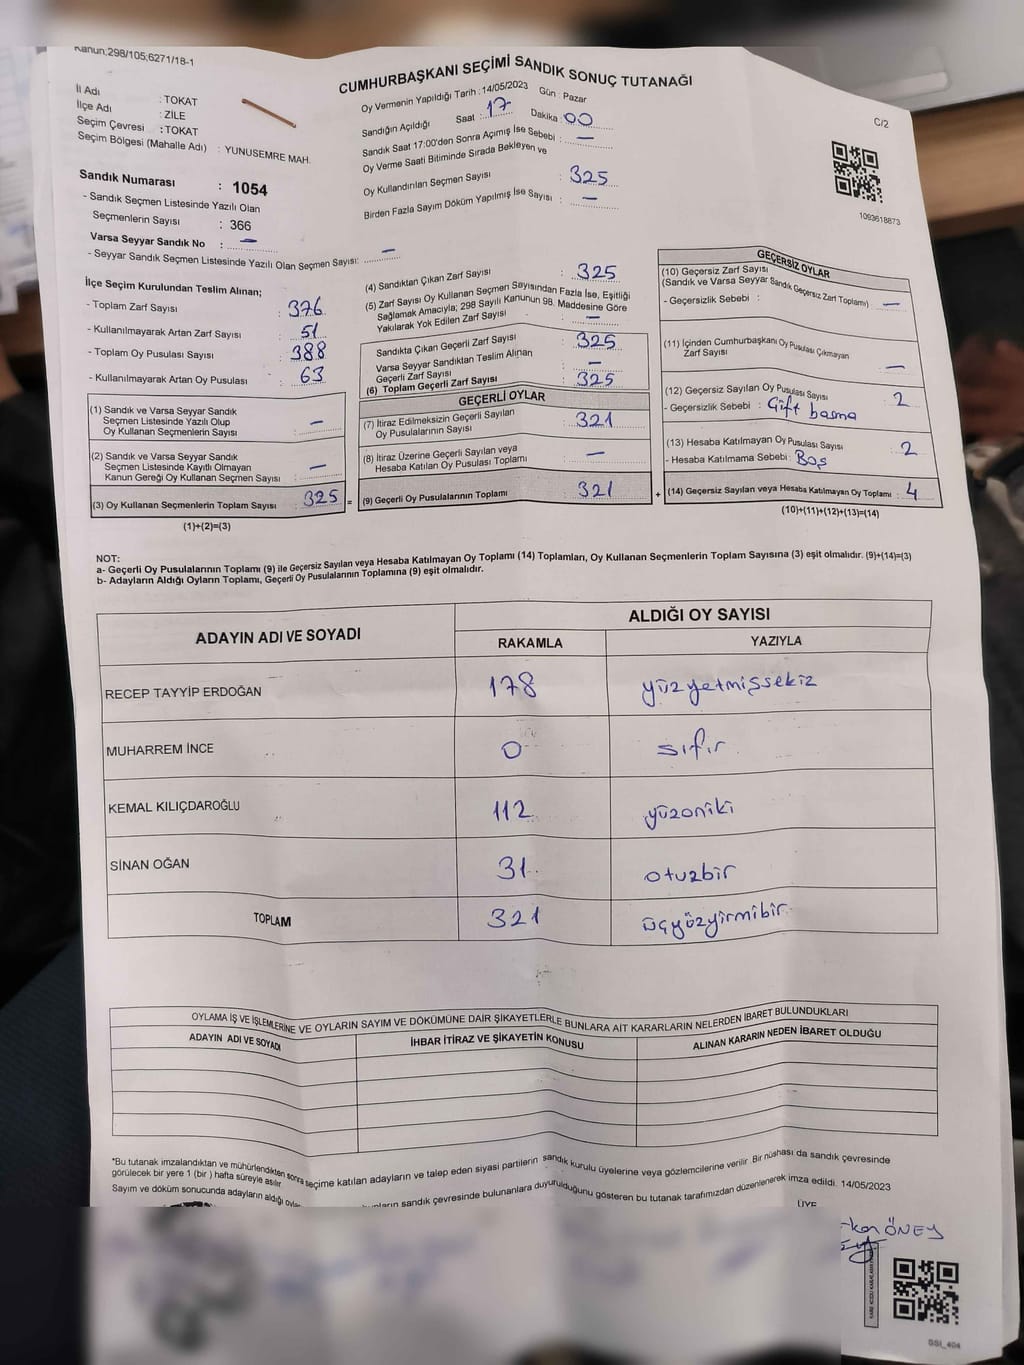 Kanun:298/105;6271/18-1
CUMHURBAŞKANI SEÇİMİ SANDIK SONUÇ TUTANAĞI
C/2
İl Adı : TOKAT
İlçe Adı : ZİLE
Seçim Çevresi : TOKAT
Seçim Bölgesi (Mahalle Adı) : YUNUSEMRE MAH.
Oy Vermenin Yapıldığı Tarih : 14/05/2023 Gün : Pazar
Sandığın Açıldığı Saat : 17 Dakika : 00
Sandık Saat 17:00'den Sonra Açımış İse Sebebi : —
Oy Verme Saati Bitiminde Sırada Bekleyen ve
Oy Kullandırılan Seçmen Sayısı : 325
Birden Fazla Sayım Döküm Yapılmış İse Sayısı : —
1093618873
Sandık Numarası : 1054
- Sandık Seçmen Listesinde Yazılı Olan
Seçmenlerin Sayısı : 366
Varsa Seyyar Sandık No : —
- Seyyar Sandık Seçmen Listesinde Yazılı Olan Seçmen Sayısı: —
İlçe Seçim Kurulundan Teslim Alınan;
- Toplam Zarf Sayısı : 376
- Kullanılmayarak Artan Zarf Sayısı : 51
- Toplam Oy Pusulası Sayısı : 388
- Kullanılmayarak Artan Oy Pusulası : 63
(1) Sandık ve Varsa Seyyar Sandık
Seçmen Listesinde Yazılı Olup
Oy Kullanan Seçmenlerin Sayısı : —
(2) Sandık ve Varsa Seyyar Sandık
Seçmen Listesinde Kayıtlı Olmayan
Kanun Gereği Oy Kullanan Seçmen Sayısı : —
(3) Oy Kullanan Seçmenlerin Toplam Sayısı : 325 =
(1)+(2)=(3)
(4) Sandıktan Çıkan Zarf Sayısı : 325
(5) Zarf Sayısı Oy Kullanan Seçmen Sayısından Fazla İse, Eşitliği
Sağlamak Amacıyla; 298 Sayılı Kanunun 98. Maddesine Göre
Yakılarak Yok Edilen Zarf Sayısı : —
Sandıkta Çıkan Geçerli Zarf Sayısı : 325
Varsa Seyyar Sandıktan Teslim Alınan
Geçerli Zarf Sayısı : —
(6) Toplam Geçerli Zarf Sayısı : 325
GEÇERLİ OYLAR
(7) İtiraz Edilmeksizin Geçerli Sayılan
Oy Pusulalarının Sayısı : 321
(8) İtiraz Üzerine Geçerli Sayılan veya
Hesaba Katılan Oy Pusulası Toplamı : —
(9) Geçerli Oy Pusulalarının Toplamı : 321 +
GEÇERSİZ OYLAR
(10) Geçersiz Zarf Sayısı
(Sandık ve Varsa Seyyar Sandık Geçersiz Zarf Toplamı) : —
- Geçersizlik Sebebi :
(11) İçinden Cumhurbaşkanı Oy Pusulası Çıkmayan
Zarf Sayısı : —
(12) Geçersiz Sayılan Oy Pusulası Sayısı : 2
- Geçersizlik Sebebi : Çift basma
(13) Hesaba Katılmayan Oy Pusulası Sayısı : 2
- Hesaba Katılmama Sebebi: Boş
(14) Geçersiz Sayılan veya Hesaba Katılmayan Oy Toplamı : 4
(10)+(11)+(12)+(13)=(14)
NOT:
a- Geçerli Oy Pusulalarının Toplamı (9) ile Geçersiz Sayılan veya Hesaba Katılmayan Oy Toplamı (14) Toplamları, Oy Kullanan Seçmenlerin Toplam Sayısına (3) eşit olmalıdır. (9)+(14)=(3)
b- Adayların Aldığı Oyların Toplamı, Geçerli Oy Pusulalarının Toplamına (9) eşit olmalıdır.
ADAYIN ADI VE SOYADI ALDIĞI OY SAYISI
RAKAMLA YAZIYLA
RECEP TAYYİP ERDOĞAN 178 yüzyetmişsekiz
MUHARREM İNCE 0 sıfır
KEMAL KILIÇDAROĞLU 112 yüzoniki
SİNAN OĞAN 31 otuzbir
TOPLAM 321 üçyüzyirmibir
OYLAMA İŞ VE İŞLEMLERİNE VE OYLARIN SAYIM VE DÖKÜMÜNE DAİR ŞİKAYETLERLE BUNLARA AİT KARARLARIN NELERDEN İBARET BULUNDUKLARI
ADAYIN ADI VE SOYADI İHBAR İTİRAZ VE ŞİKAYETİN KONUSU ALINAN KARARIN NEDEN İBARET OLDUĞU
*Bu tutanak imzalandıktan ve mühürlendikten sonra seçime katılan adayların ve talep eden siyasi partilerin sandık kurulu üyelerine veya gözlemcilerine verilir. Bir nüshası da sandık çevresinde
görülecek bir yere 1 (bir ) hafta süreyle asılır.
Sayım ve döküm sonucunda adayların aldığı oyların sandık çevresinde bulunanlara duyurulduğunu gösteren bu tutanak tarafımızdan düzenlenerek imza edildi. 14/05/2023
ÜYE
ÖNEY
SSİ_404